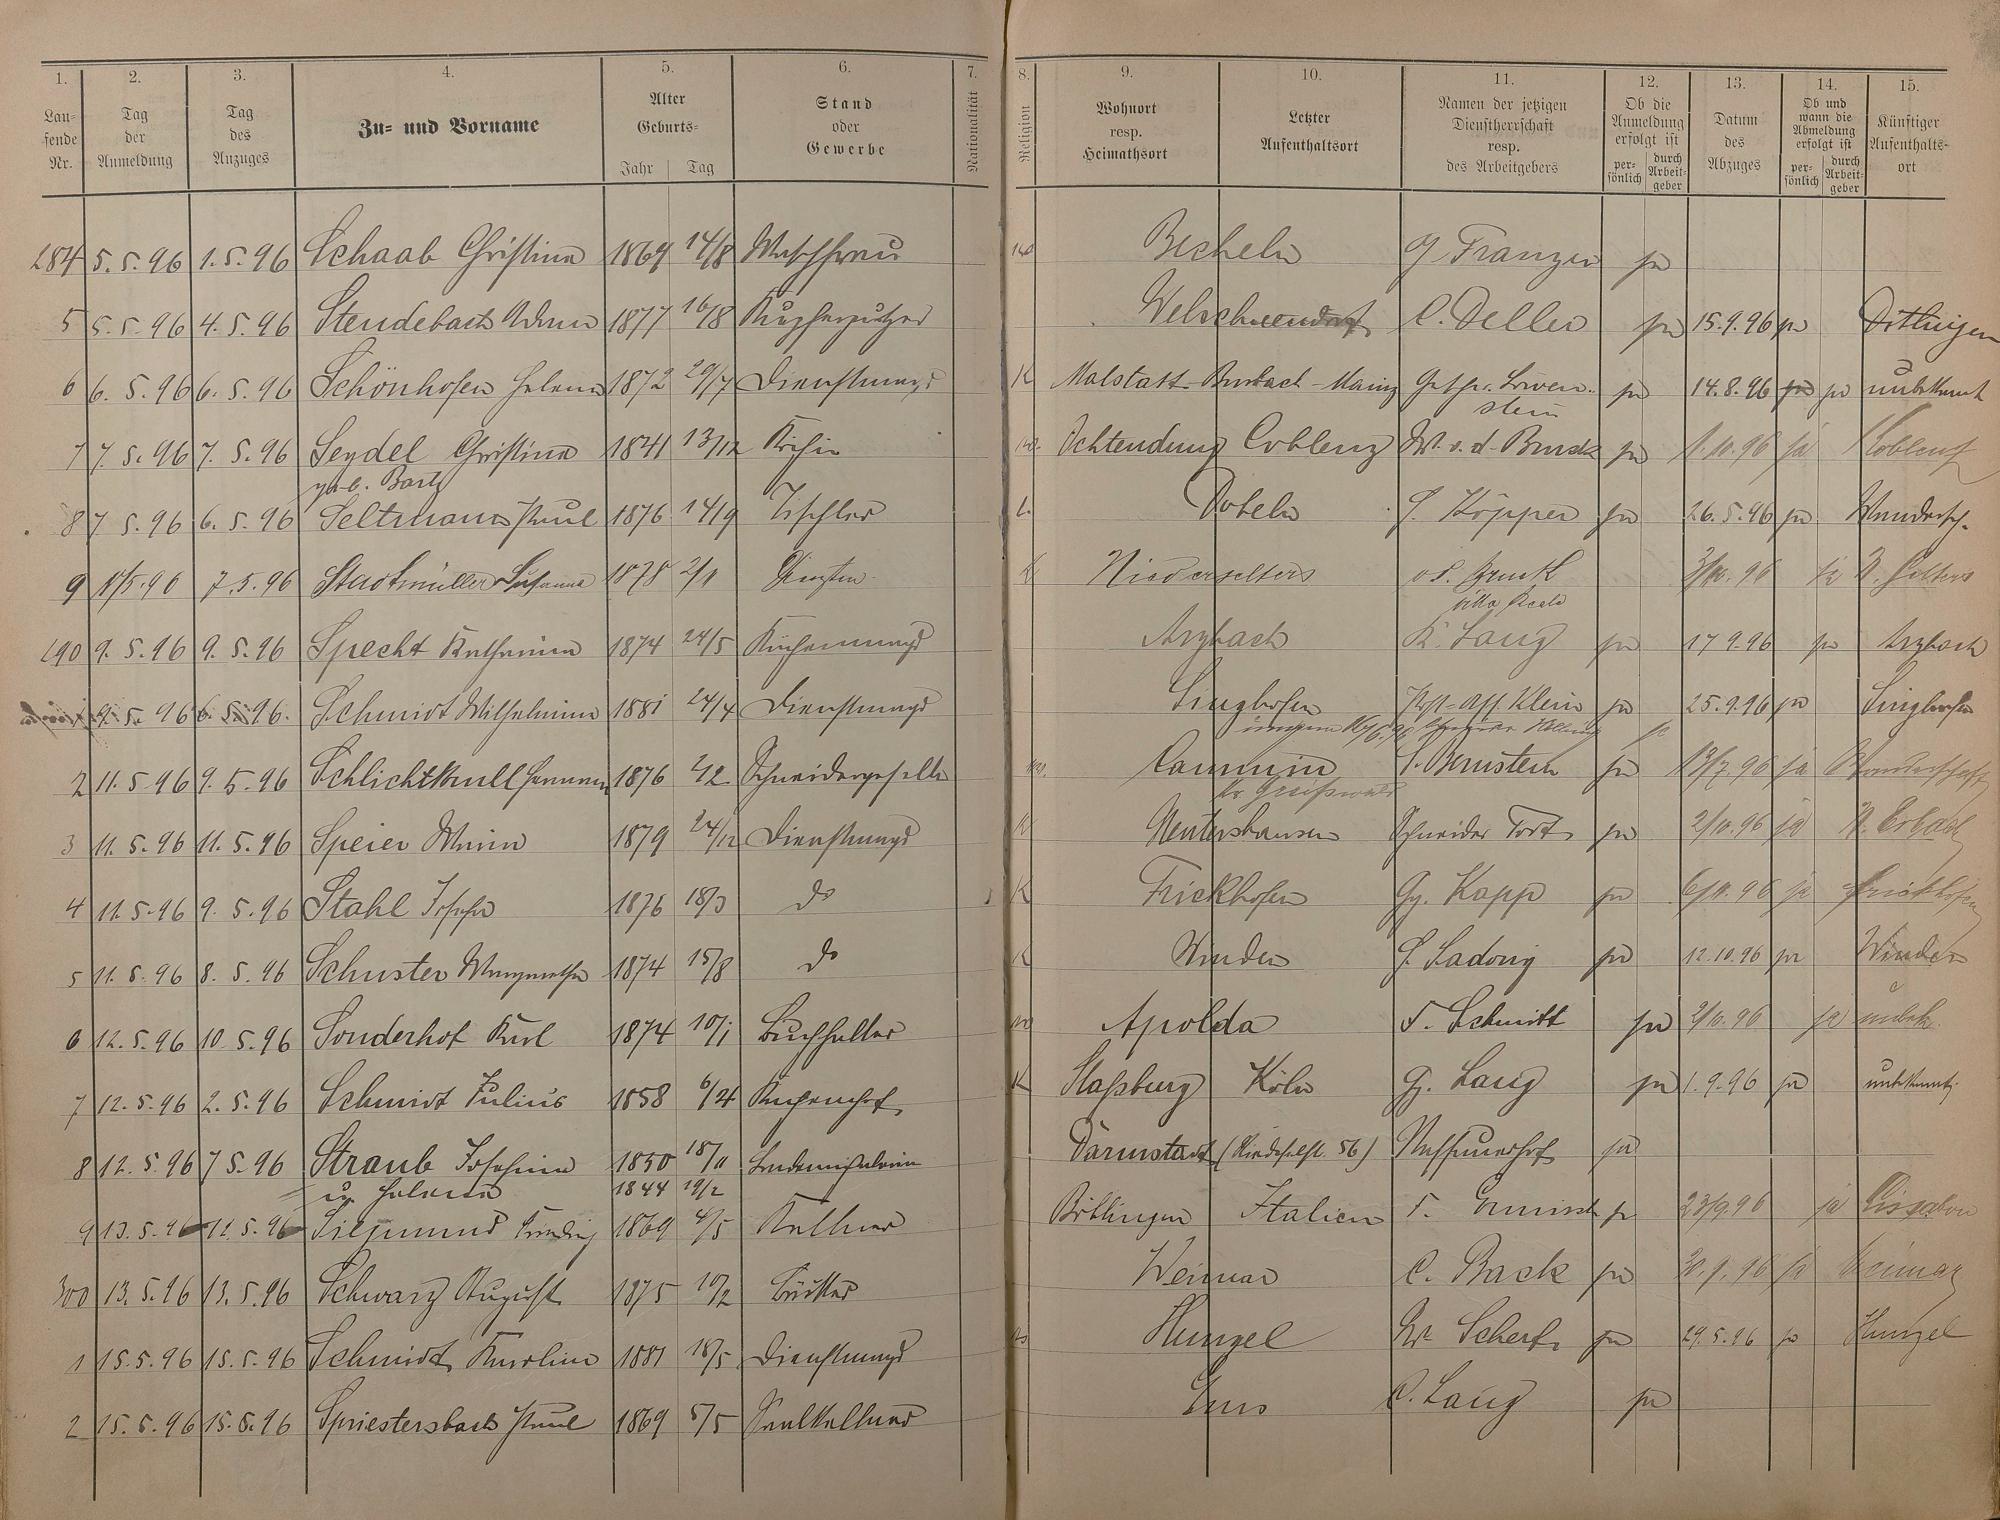 1. 2. 3. 4. 5. 6. 7. 8. 9. 10. 11. 12. 13. 14. 15.
Lau-fende Nr. Tag der Anmeldung Tag des Anzuges Zu- und Vorname Alter Geburts- Jahr Tag Stand oder Gewerbe Nationalität Religion Wohnort resp. Heimathsort Letzter Aufenthaltsort Namen der jetzigen Dienstherrschaft resp. des Arbeitgebers Ob die Anmeldung erfolgt ist per-sönlich durch Arbeit-geber Datum des Abzuges Ob und wann die Abmeldung erfolgt ist per-sönlich durch Arbeit-geber Künftiger Aufenthalts-ort
284 5.5.96 1.5.96 Schaab Christina 1869 14/8 Waschfrau Becheln Franzen ja
5 5.5.96 4.5.96 Stendebach 1877 16/8 Kupferputzer Welschneudorf C. Deller ja 15.9.96 ja
6 6.5.96 6.5.96 Schönhofen Helena 1872 29/7 Dienstmagd K Malstatt-Burbach Mainz Löwen-
stein ja 14.8.96 ja ja unbekannt
7 7.5.96 7.5.96 Seydel Christina 1841 13/12 Köchin Ochtendung Coblenz ja 1.10.96 ja Koblenz
geb. Bartz
8 7.5.96 6.5.96 Seltmann Paul 1876 14/9 Tischler L. Döbeln Köpper ja 26.5.96 ja Wandersch.
9 7.5.96 Stadtmüller Susanna 1878 2/1 K Niederselters 3/10.96 N. Selters
290 9.5.96 9.5.96 Specht Katharina 1874 24/5 Küchenmagd Arzbach K. Lang ja 17.9.96 ja Arzbach
9.5.96 6.5.96. Schmidt Wilhelmine 1881 24/4 Dienstmagd Singhofen Klein ja 25.9.96 ja Singhofen
2 11.5.96 9.5.96 Schlichtkrull Hermann 1876 2/12 Schneidergeselle Cammin Bernstein ja 13/7.96 ja Wanderschaft
Kr. Greifswald
3 11.5.96 11.5.96 Speier Maria 1879 24/12 Dienstmagd K Nentershausen Schneider ja 2/10.96 ja
4 11.5.96 9.5.96 Stahl Josefa 1876 18/3 do K Frickhofen Gg. Kapp ja 96 ja Frickhofen
5 11.5.96 8.5.96 Schuster Margaretha 1874 15/8 do K Winden Ladwig ja 12.10.96 ja Winden
6 12.5.96 10.5.96 Sonderhof Karl 1874 10/1 Buchhalter Apolda F. Schmitt ja 2/10.96 ja unbek.
7 12.5.96 2.5.96 Schmidt Julius 1858 6/24 Küchenchef K Köln Lang ja 1.9.96 ja unbekannt
8 12.5.96 7.5.96 Straub Josefina 1850 18/11 Darmstadt 56) Nassauerhof ja
u. Helena 1844 19/2
9 13.5.96 12.5.96 Siegmund 1869 4/5 Kellner Böblingen Italien F. ja 23/9.96 ja Lissabon
300 13.5.96 13.5.96 Schwarz August 1875 10/2 Weimar C. Back ja 30.9.96 ja Weimar
1 15.5.96 15.5.96 Schmidt Karolina 1881 18/5 Dienstmagd Hunzel Scherf ja 29.5.96 ja Hunzel
2 15.5.96 15.5.96 Spriestersbach Paul 1869 5/5 Saalkellner Ems C. Lang ja